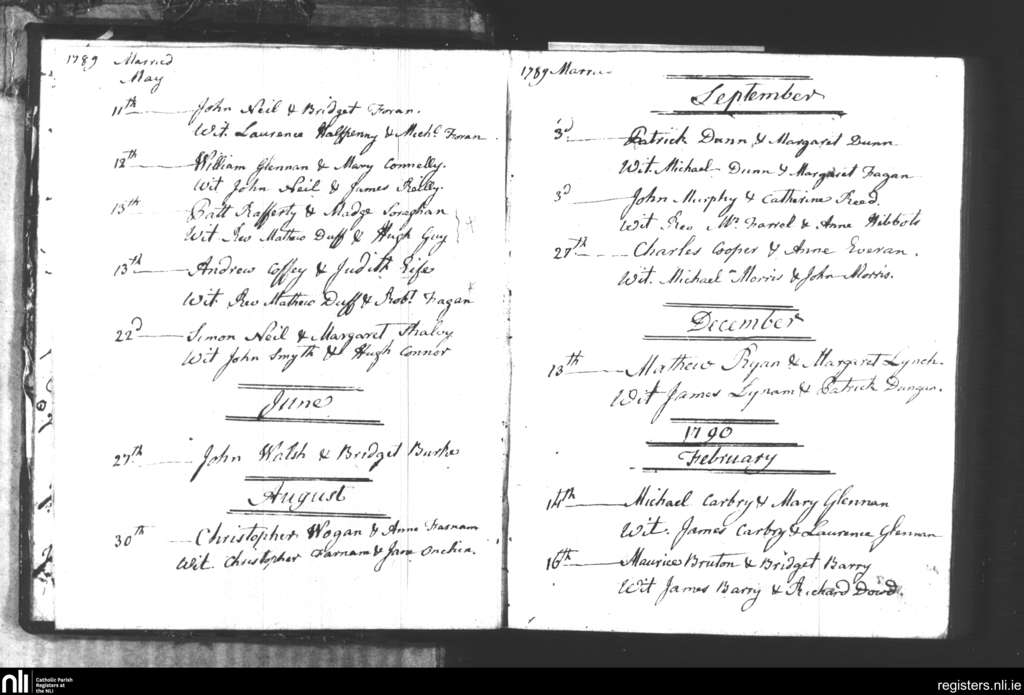 1789 Married
May
11th John Neil & Bridget Foran.
Wit. Laurence Halfpenny & Michl. Foran
12th William Glennan & Mary Connelly.
Wit John Neil & James Reilly.
13th Patt Rafferty & Madge Soraghan
Wit Rev Mathew Duff & Hugh Guy
13th Andrew Coffey & Judith Fife
Wit Rev Mathew Duff & Robt. Fagan
22d Simon Neil & Margaret
Wit John Smyth & Hugh Connor
June
27th John Walsh & Bridget Burke
August
30th Christopher Wogan & Anne Farnam
Wit Christopher Farnam & Jane
1789 Married
September
3d Patrick Dunn & Margaret Dunn
Wit. Michael Dunn & Margaret Fagan
3d John Murphy & Catherine Reed.
Wit Rev Mr. Farrel & Anne Hibbots
27th Charles Cooper & Anne Everan.
Wit. Michael Morris & John Morris.
December
13th Mathew Ryan & Margaret Lynch
Wit James Lynam & Patrick Dungan.
1790
February
14th Michael Carbry & Mary Glennan
Wit. James Carbry & Laurence Glennan
16th Maurice Bruton & Bridget Barry
Wit James Barry & Richard Dowd.
nli
Catholic Parish
Registers at
the NLI
registers.nli.ie